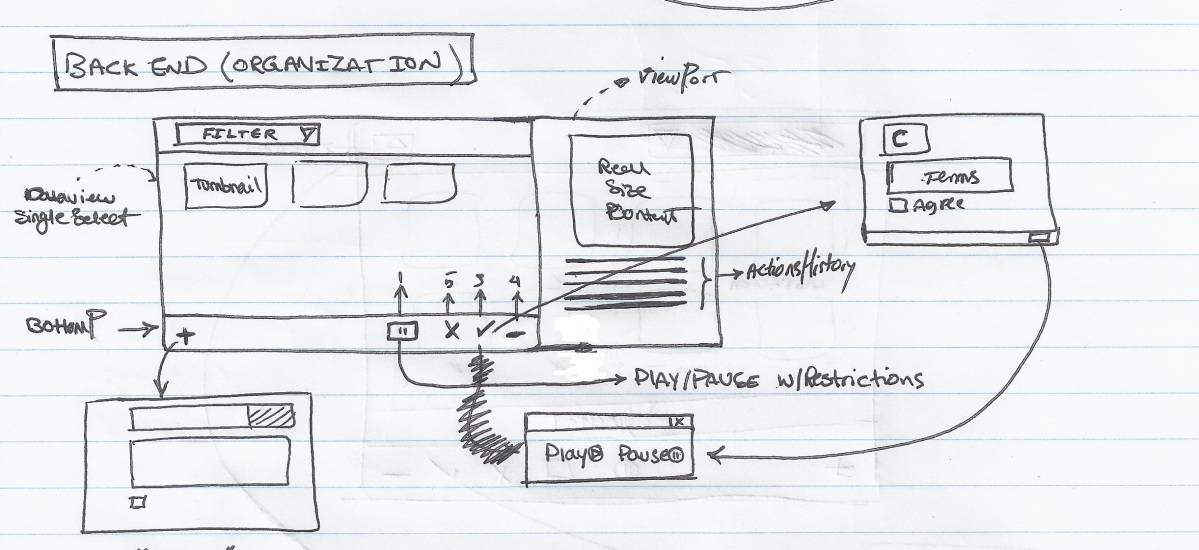 BACK END (ORGANIZATION)
ViewPort
FILTER
Tumbnail
Dataview
Single Select
Reall
Size
Content
C
Terms
Agree
Actions/History
1 5 3 4
Bottom P
+ X ✓ -
PLAY/PAUSE W/Restrictions
X
Play Pause